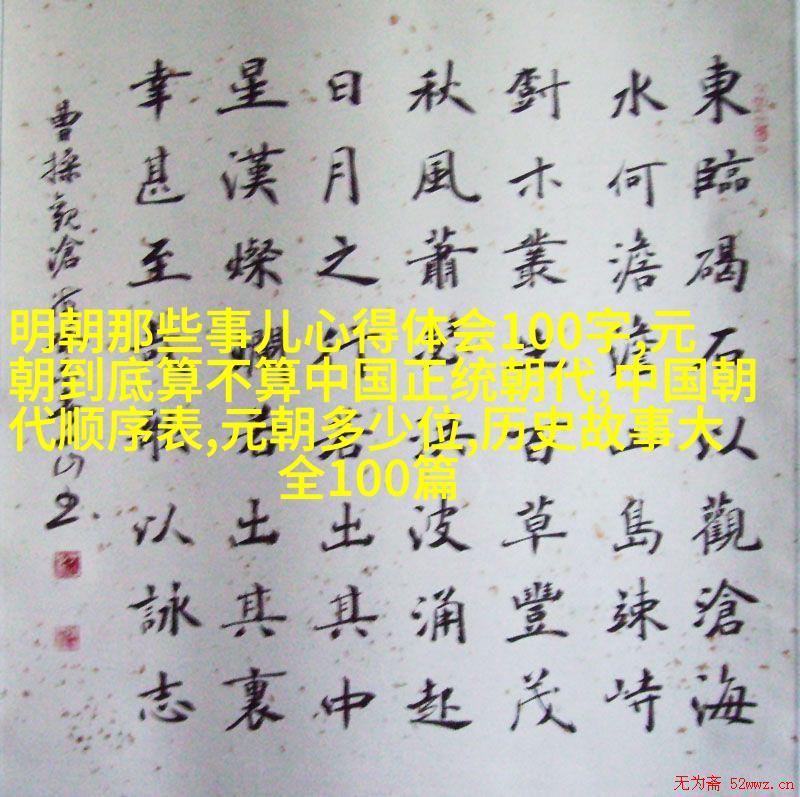 東臨碣石以觀滄海
水何澹澹山島竦峙
尌木叢生百草豐茂
秋風蕭瑟洪波涌起
日月之行若出其中
星漢燦爛若出其裏
幸甚至哉歌以詠志
曹操观滄
明朝那些事儿心得体会100字,元
朝到底算不算中国正统朝代,中国朝
代顺序表,元朝多少位,历史故事大
全100篇
无为斋 52wwz.cn